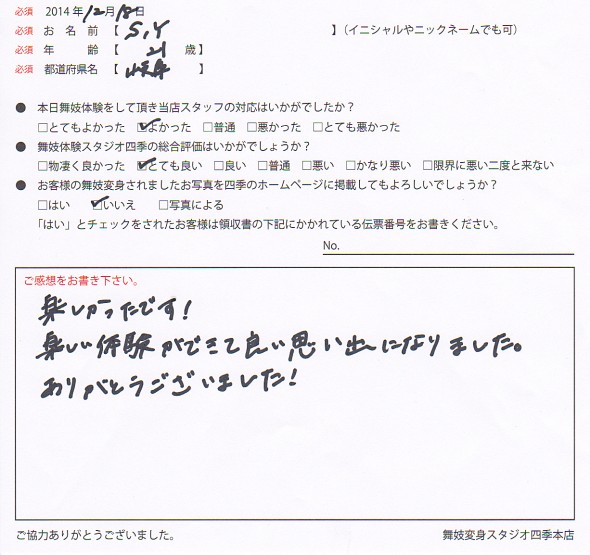 必須 2014年12月18日
必須 お名前【 S,Y 】(イニシャルやニックネームでも可)
必須 年齢【 21 歳】
必須 都道府県名【 】
● 本日舞妓体験をして頂き当店スタッフの対応はいかがでしたか?
□とてもよかった ☑よかった □普通 □悪かった □とても悪かった
● 舞妓体験スタジオ四季の総合評価はいかがでしょうか?
□物凄く良かった ☑とても良い □良い □普通 □悪い □かなり悪い □限界に悪い二度と来ない
● お客様の舞妓変身されましたお写真を四季のホームページに掲載してもよろしいでしょうか?
□はい ☑いいえ □写真による
「はい」とチェックをされたお客様は領収書の下記にかかれている伝票番号をお書きください。
No.
ご感想をお書き下さい。
楽しかったです!
楽しい体験ができて良い思い出になりました。
ありがとうございました!
ご協力ありがとうございました。 舞妓変身スタジオ四季本店